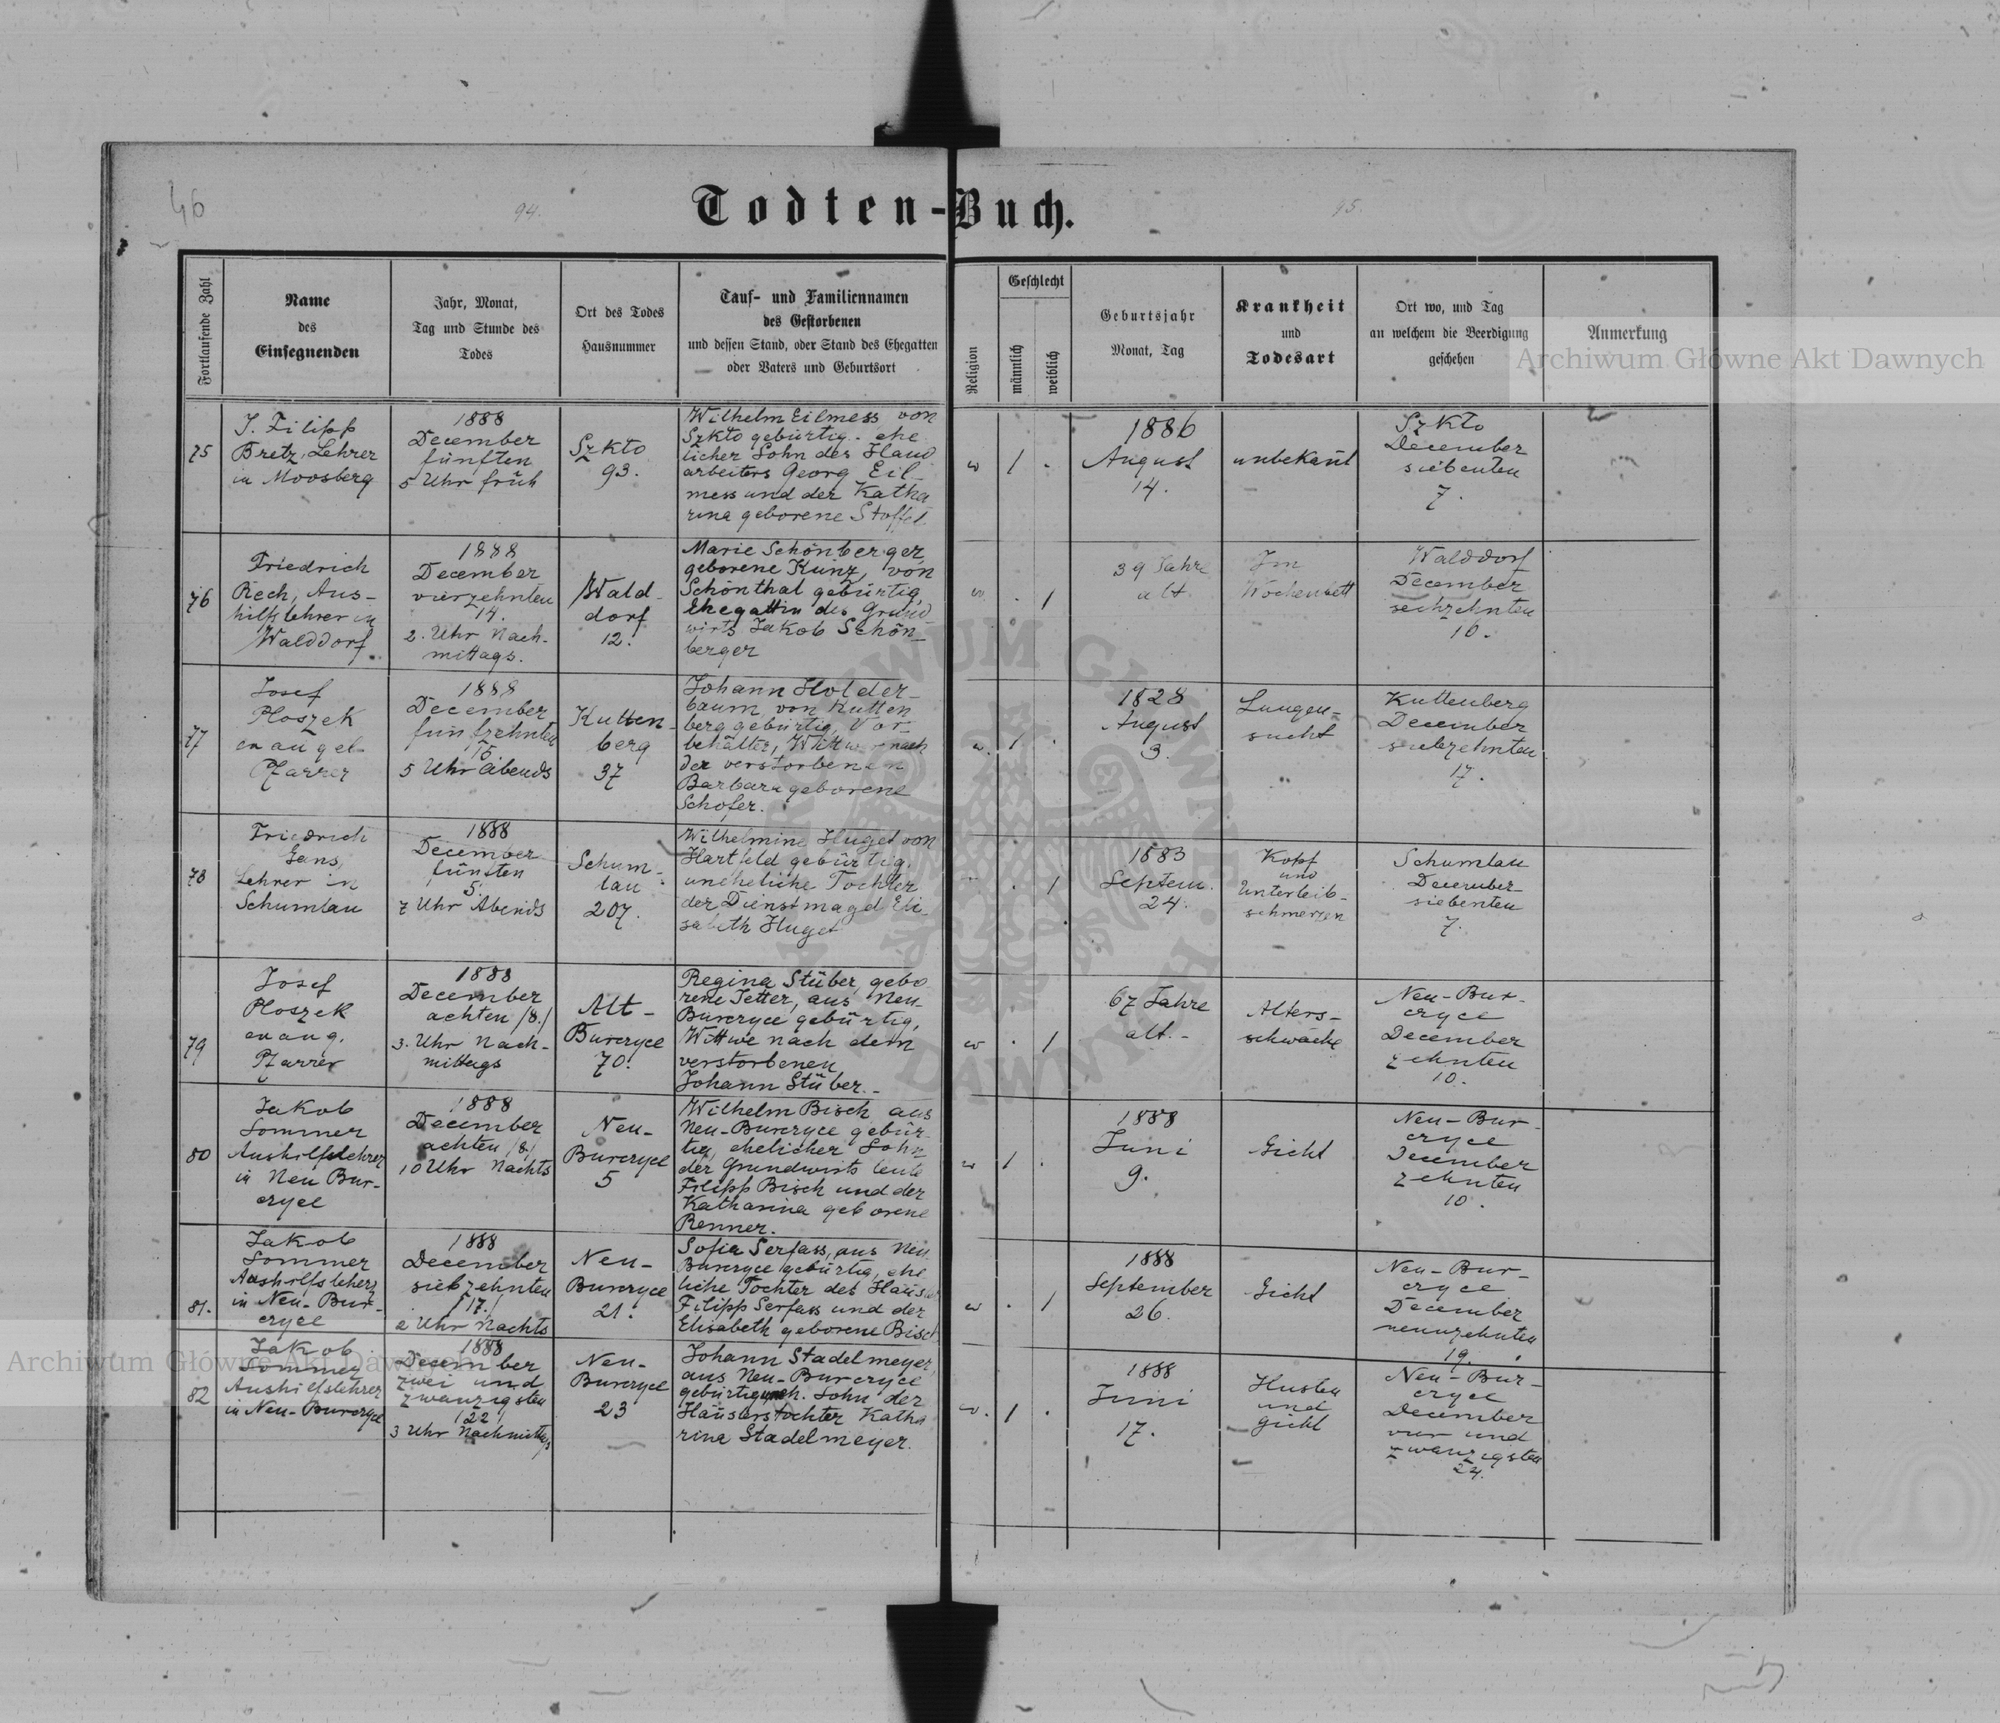 46
94.
95.
Todten-Buch.
Fortlaufende Zahl
Name
des
Einsegnenden
Jahr, Monat,
Tag und Stunde des
Todes
Ort des Todes
Hausnummer
Tauf- und Familiennamen
des Gestorbenen
und dessen Stand, oder Stand des Ehegatten
oder Vaters und Geburtsort
Religion
Geschlecht
männlich
weiblich
Geburtsjahr
Monat, Tag
Krankheit
und
Todesart
Ort wo, und Tag
an welchem die Beerdigung
geschehen
Anmerkung
Archiwum Główne Akt Dawnych
75
J. Filipp
Bretz, Lehrer
in Moosberg
1888
December
fünften
5 Uhr früh
Szkto
93.
Wilhelm Eilmess von
Szkto gebürtig. ehe
licher Sohn des Hand
arbeiters Georg Eil-
mess und der Katha
rina geborene Stoffel
1
1886
August
14.
unbekant
Szkto
December
siebenten
7.
76
Friedrich
Rech, Aus-
hilfslehrer in
Walddorf.
1888
December
vierzehnten
14.
2. Uhr Nach-
mittags.
Wald-
dorf
12.
Marie Schönberger,
geborene Kunz, von
Schönthal gebürtig,
Ehegattin des Grund-
wirts Jakob Schön-
berger
1
39 Jahre
alt.
Im
Wochenbett
Walddorf
December
sechzehnten
16.
77
Josef
Ploszek
evangel-
Pfarrer
1888
December
fünfzehnten
15
5 Uhr Abends
Kutten-
berg
37
Johann Holder-
baum von Kutten
berg gebürtig, Vor-
behälter, Wittwer nach
der verstorbenen
Barbara geborene
Schofer.
1
1828
August
3.
Lungen-
sucht
Kuttenberg
December
siebzehnten
17.
78
Friedrich
Gans,
Lehrer in
Schumlau
1888
December
fünften
5.
7 Uhr Abends
Schum-
lau
207.
Wilhelmine Huget von
Hartfeld gebürtig,
uneheliche Tochter
der Dienstmagd Eli-
sabeth Huget
1
1883
Septem.
24.
Kopf
und
Unterleib-
schmerzen
Schumlau
December
siebenten
7.
79
Josef
Ploszek
evang.
Pfarrer
1888
December
achten /8./
3. Uhr Nach-
mittags
Alt-
Burczyce
70.
Regina Stüber, gebo
rene Jetter, aus Neu-
Burczyce gebürtig,
Wittwe nach dem
verstorbenen
Johann Stüber.-
1
67 Jahre
alt.-
Alters-
schwäche
Neu-Bur-
czyce
December
zehnten
10.
80
Jakob
Sommer
Aushilfslehrer
in Neu Bur-
czyce
1888
December
achten /8/
10 Uhr Nachts
Neu-
Burczyce
5
Wilhelm Bisch aus
Neu-Burczyce gebür-
tig, ehelicher Sohn
der Grundwirtsleute
Filipp Bisch und der
Katharina geborene
Renner.
1
1888
Juni
9.
Gicht
Neu-Bur-
czyce
December
zehnten
10.
81.
Jakob
Sommer
Aushilfslehrer
in Neu-Bur-
czyce
1888
December
siebzehnten
/17./
2 Uhr Nachts
Neu-
Burczyce
21.
Sofia Serfass, aus Neu
Burczyce gebürtig, ehe
liche Tochter des Häusler
Filipp Serfass und der
Elisabeth geborene Bisch
1
1888
September
26.
Gicht
Neu-Bur-
czyce
December
neunzehnten
19.
82
Jakob
Sommer
Aushilfslehrer
in Neu-Burczyce
1888
December
zwei und
zwanzigsten
/22/
3 Uhr Nachmittags
Neu-
Burczyce
23
Johann Stadelmeyer,
aus Neu-Burczyce
gebürtig, uneh. Sohn der
Häuslerstochter Katha
rina Stadelmeyer.
1
1888
Juni
17.
Husten
und
Gicht
Neu-Bur-
czyce
December
vier und
zwanzigsten
24.
Archiwum Główne Akt Dawnych